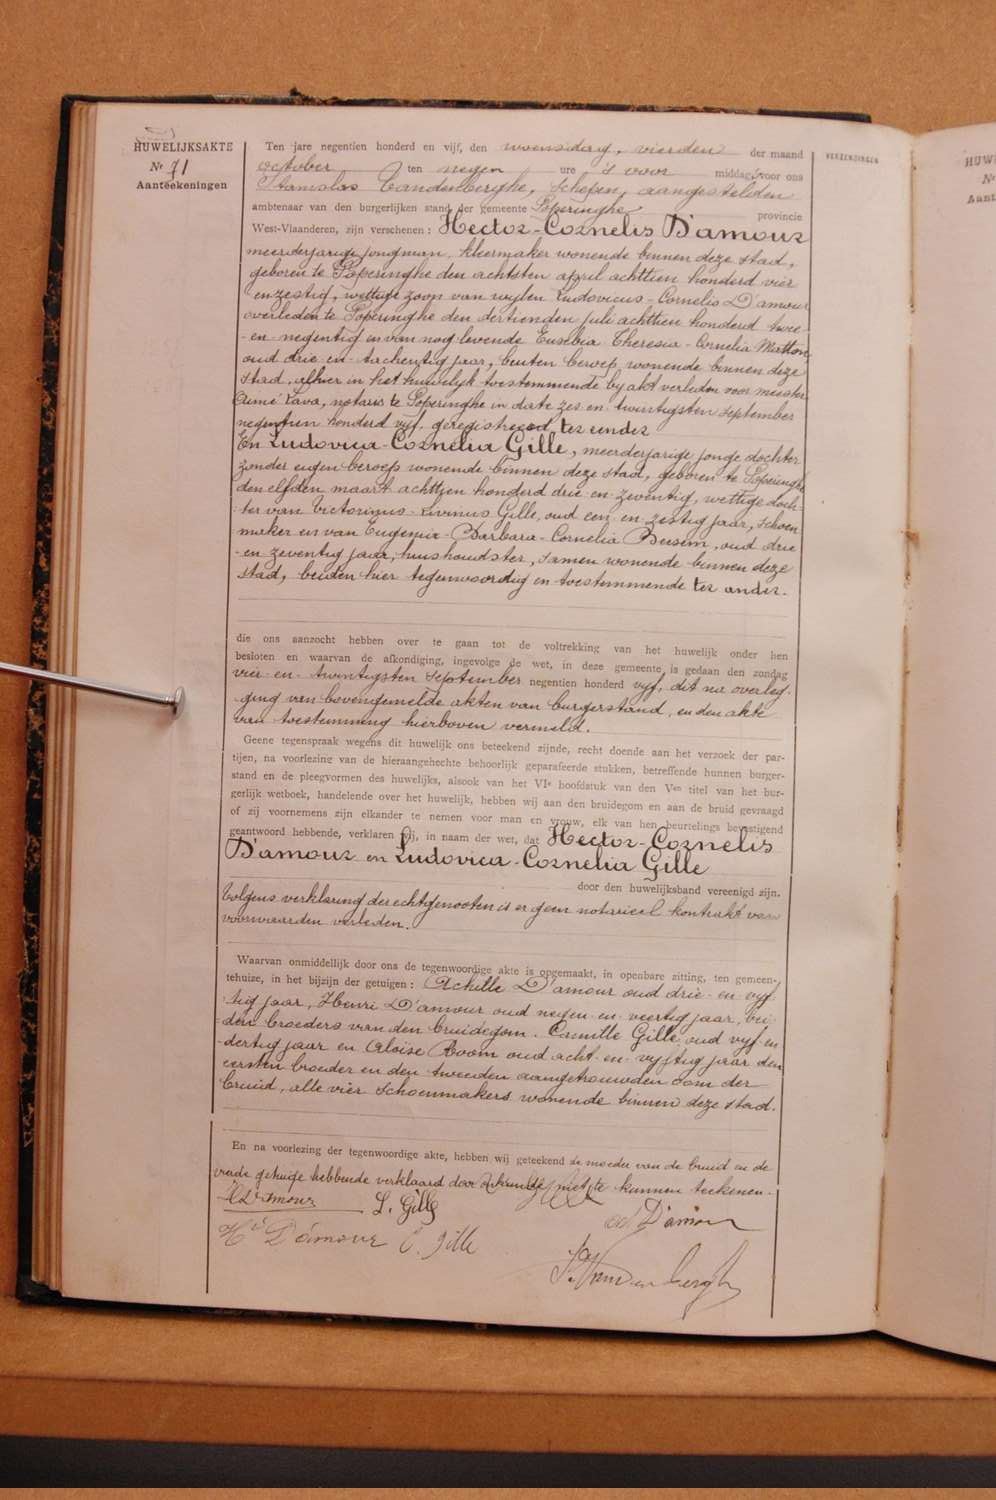 HUWELIJKSAKTE
Nr 71
Aanteekeningen
Ten jare negentien honderd en vijf, den woensdag, vierden der maand
october ten negen ure 's voor middags voor ons
Stanislas Vandenberghe, Schepen, aangestelden
ambtenaar van den burgerlijken stand der gemeente Poperinghe provincie
West-Vlaanderen, zijn verschenen : Hector-Cornelis D'amour
meerderjarige jongman, kleermaker wonende binnen deze stad,
geboren te Poperinghe den achtsten april achttien honderd vier
en zestig, wettige zoon van wijlen Ludovicus-Cornelis D'amour
overleden te Poperinghe den dertienden juli achttien honderd twee
-en-negentig en van nog levende Eusebia Theresia-Cornelia Matton
oud drie en tachentig jaar, buiten beroep wonende binnen deze
stad, alhier in het huwelijk toestemmende by akt verleden voor meester
Aimé Lava, notaris te Poperinghe in date zes en twintigsten september
negentien honderd vijf, geregistreerd ter eender
En Ludovica-Cornelia Gille, meerderjarige jonge dochter
zonder eigen beroep wonende binnen deze stad, geboren te Poperinghe
den elfden maart achttien honderd drie en zeventig, wettige doch-
ter van Victorinus-Livinus Gille, oud een en zestig jaar, schoen
maker en van Eugenia-Barbara-Cornelia Beesem, oud drie
-en zeventig jaar, huishoudster, samen wonende binnen deze
stad, beiden hier tegenwoordig en toestemmende ter ander.
die ons aanzocht hebben over te gaan tot de voltrekking van het huwelijk onder hen
besloten en waarvan de afkondiging, ingevolge de wet, in deze gemeente is gedaan den zondag
vier-en-twintigsten september negentien honderd vijf, dit na overleg-
ging van bovengemelde akten van burgerstand, en den akte
van toestemming hierboven vermeld.
Geene tegenspraak wegens dit huwelijk ons beteekend zijnde, recht doende aan het verzoek der par-
tijen, na voorlezing van de hieraangehechte behoorlijk geparafeerde stukken, betreffende hunnen burger-
stand en de pleegvormen des huwelijks, alsook van het VIe hoofdstuk van den Ven titel van het bur-
gerlijk wetboek, handelende over het huwelijk, hebben wij aan den bruidegom en aan de bruid gevraagd
of zij voornemens zijn elkander te nemen voor man en vrouw, elk van hen beurtelings bevestigend
geantwoord hebbende, verklaren wij, in naam der wet, dat Hector-Cornelis
D'amour en Ludovica-Cornelia Gille
door den huwelijksband vereenigd zijn.
Volgens verklaring der echtgenooten is er geen notarieel kontrakt van
voorwaarden verleden.
Waarvan onmiddellijk door ons de tegenwoordige akte is opgemaakt, in openbare zitting, ten gemeen-
tehuize, in het bijzijn der getuigen : Achille D'amour oud drie-en-vijf
tig jaar, Henri D'amour oud negen-en-veertig jaar, bei
den broeders van den bruidegom. Camille Gille oud vijf en
dertig jaar en Aloise Room oud acht-en-vijftig jaar den
eersten broeder en den tweeden aangetrouwden oom der
bruid, alle vier schoenmakers wonende binnen deze stad.
En na voorlezing der tegenwoordige akte, hebben wij geteekend de moeder van de bruid en de
vierde getuige hebbende verklaard door onkunde niet te kunnen teekenen.
H D'amour L. Gille
ach D'amour
Hri D'amour C. Gille
St. Vandenberghe
KENZENZINGEN
HUW
Nr
Aant